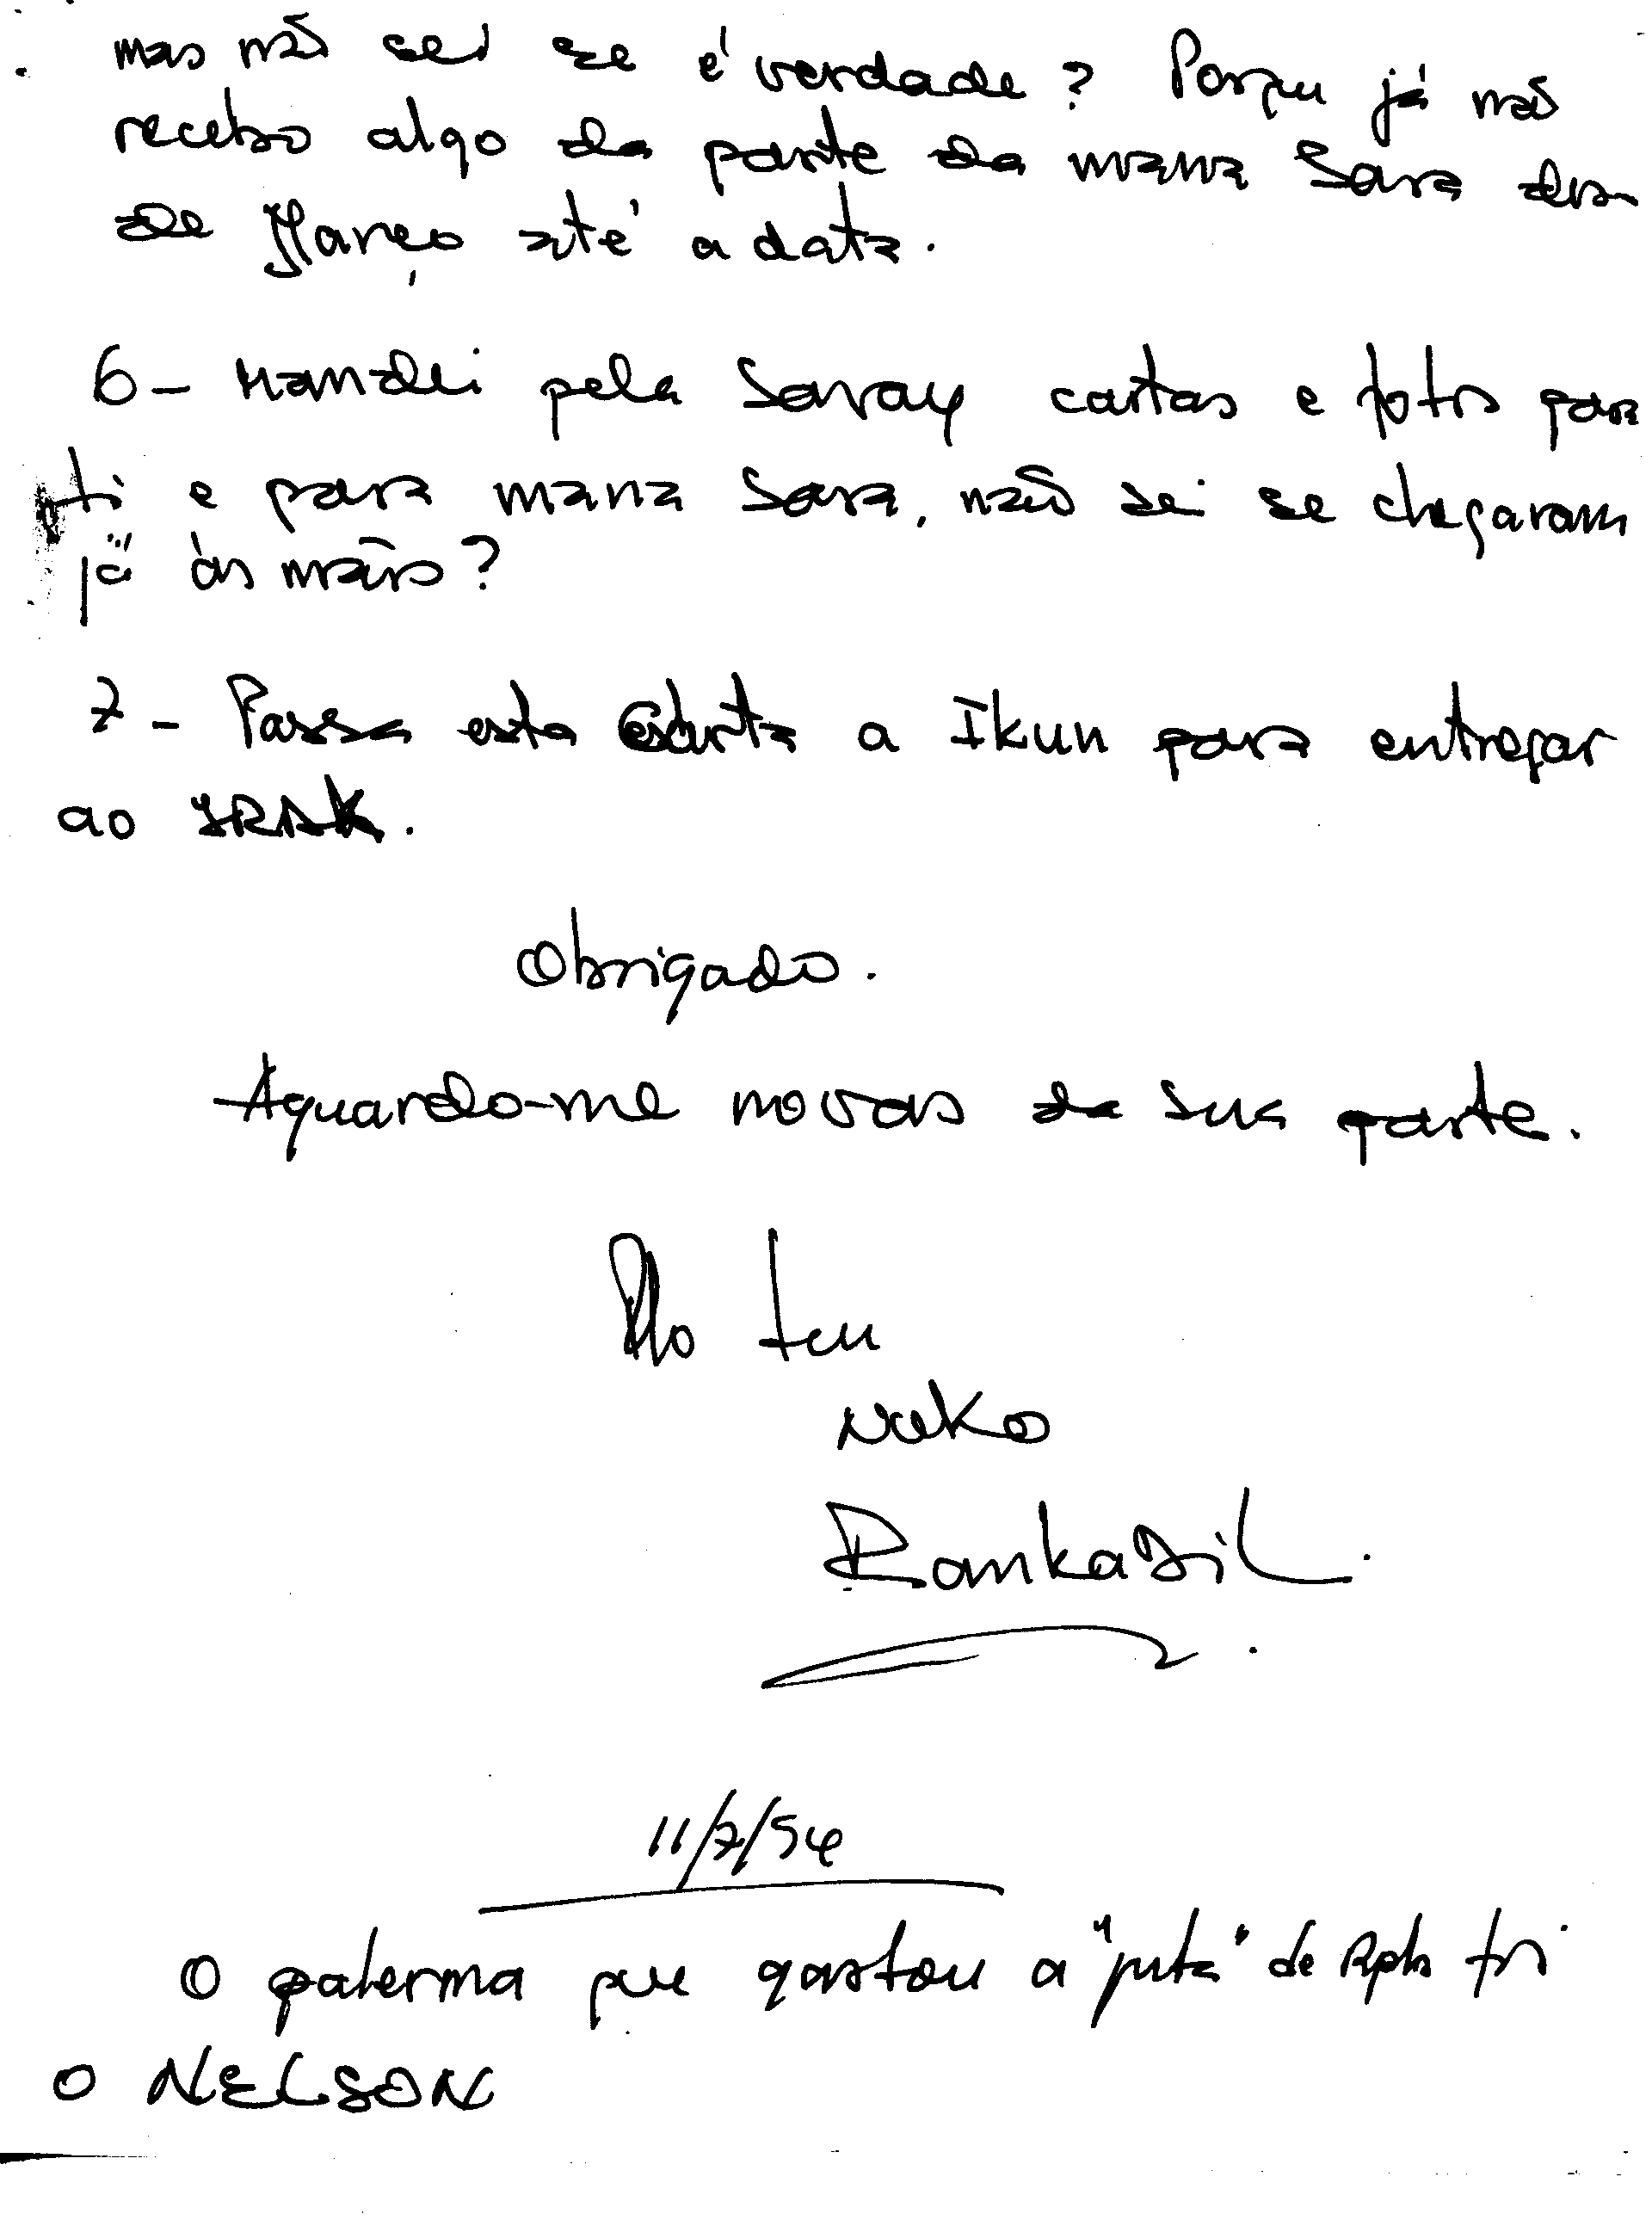 mas não sei se é verdade? Porque já não
recebo algo da parte da mana Sara des-
de Março até a data.
6 - Mandei pela Saray cartas e fotos para
ti e para mana Sara, não sei se chegaram
já às mãos?
7 - Passa esta carta a Ikun para entregar
ao IRAK.
Obrigado.
Aguardo-me novas da sua parte.
Pelo teu
Neko
Rankadil.
11/7/94
O palerma que gastou a "juta" de foi
o NELSON